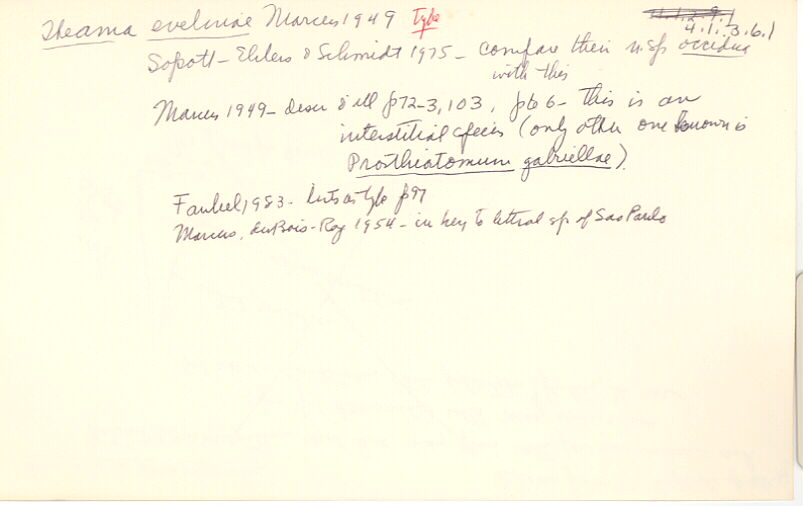 Theama evelinae Marcus 1949 Type
4.1.3.6.1
Sopott-Ehlers & Schmidt 1975 - compare their n.sp occidua
with this
Marcus 1949 - descr & ill p72-3, 103, p66 - this is an
interstitial species (only other one known is
Prosthiostomum gabriellae).
Faubel 1983 - lists as type p97
Marcus, duBois-Rey 1954 - in key to littoral sp of Sao Paulo